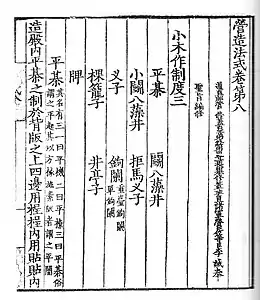 營造法式卷第八
通直郎管修蓋皇弟外第專一提舉修蓋班直諸軍營房等臣李誡奉
聖旨編修
小木作制度三
平棊 鬭八藻井
小鬭八藻井 拒馬叉子
叉子 鉤闌 重臺鉤闌
單鉤闌
棵籠子 井亭子
牌
平棊 其名有三一曰平機二曰平橑三曰平棊俗
謂之平起其以方椽施素版者謂之平闇
造殿內平棊之制於背版之上四邊用桯桯內用貼貼內